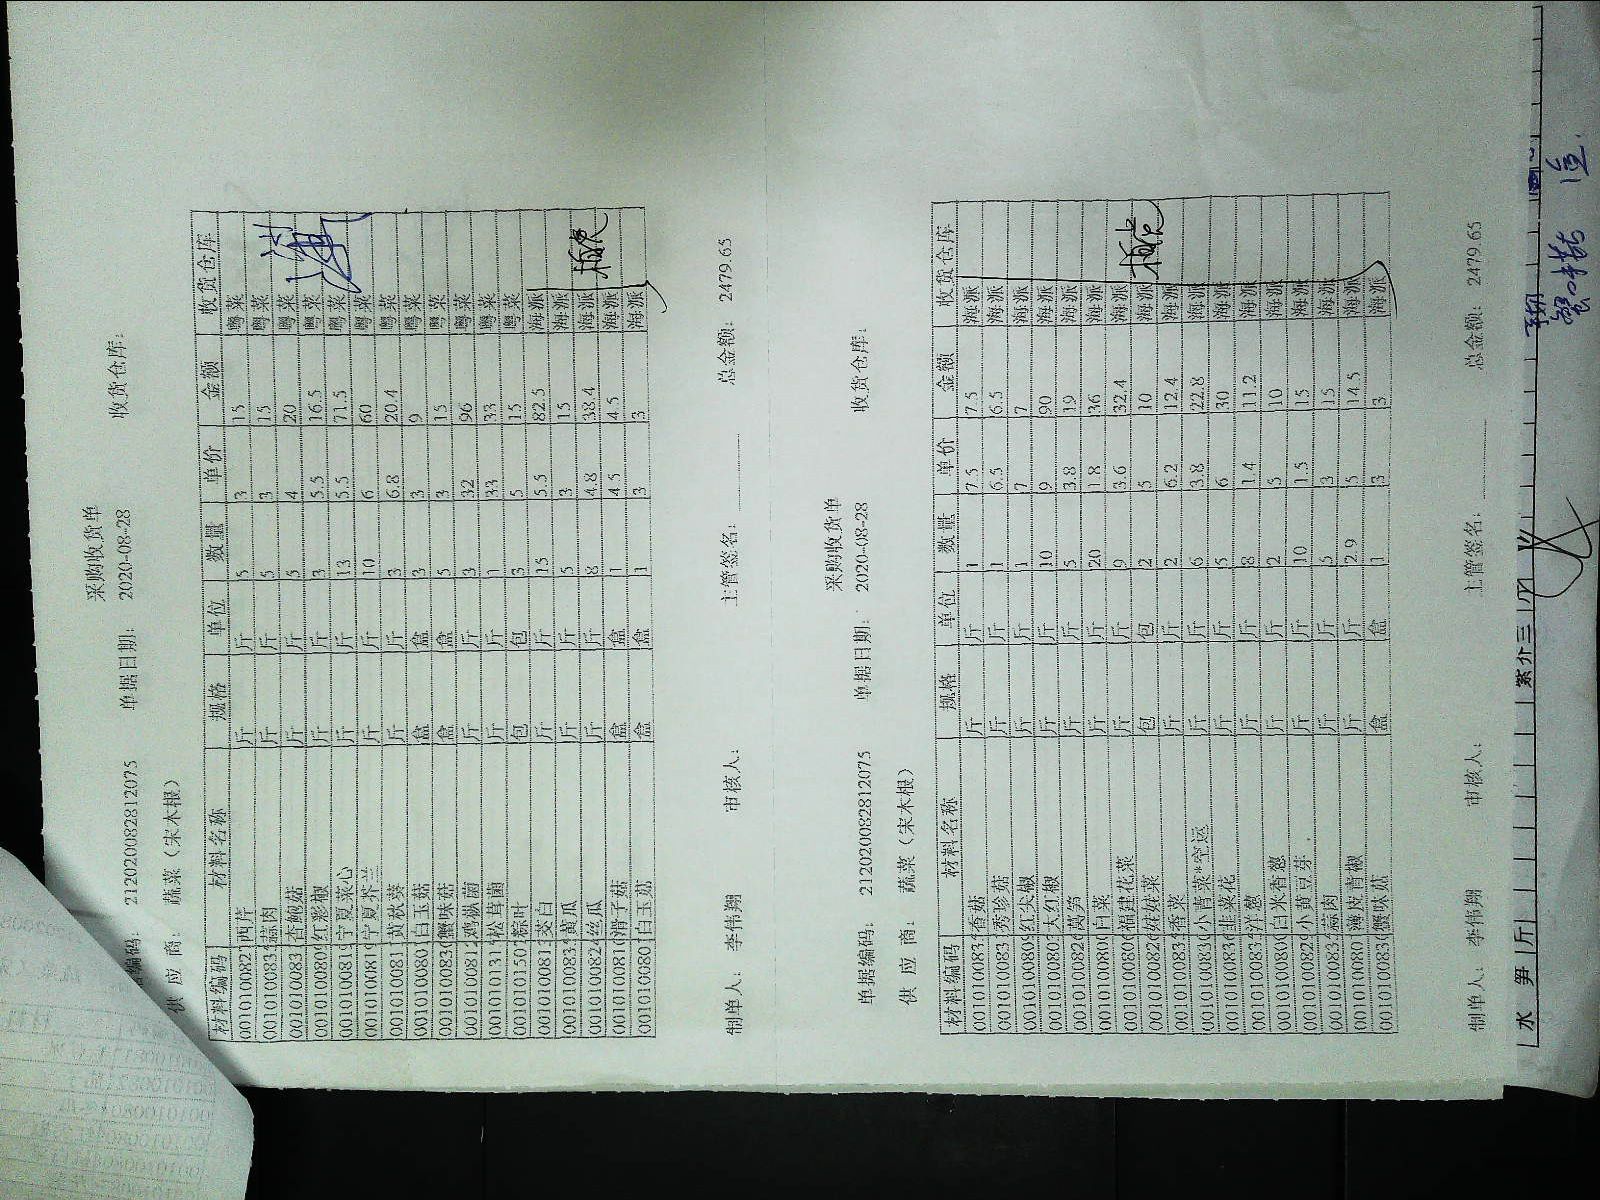 采购收货单
编码: 212020082812075 单据日期: 2020-08-28 收货仓库:
供 应 商: 蔬菜（宋木根）
材料编码 材料名称 规格 单位 数量 单价 金额 收货仓库
001010082 西芹 斤 斤 5 3 15 粤菜
001010083 蒜肉 斤 斤 5 3 15 粤菜
001010083 杏鲍菇 斤 斤 5 4 20 粤菜
001010080 红彩椒 斤 斤 3 5.5 16.5 粤菜
001010081 宁夏菜心 斤 斤 13 5.5 71.5 粤菜
001010081 宁夏芥兰 斤 斤 10 6 60 粤菜
001010081 黄秋葵 斤 斤 3 6.8 20.4 粤菜
001010080 白玉菇 盒 盒 3 3 9 粤菜
001010083 蟹味菇 盒 盒 5 3 15 粤菜
001010081 鸡枞菌 斤 斤 3 32 96 粤菜
001010131 松茸菌 斤 斤 1 33 33 粤菜
001010150 粽叶 包 包 3 5 15 粤菜
001010081 茭白 斤 斤 15 5.5 82.5 海派
001010083 黄瓜 斤 斤 5 3 15 海派
001010082 丝瓜 斤 斤 8 4.8 38.4 海派
001010081 滑子菇 盒 盒 1 4.5 4.5 海派
001010080 白玉菇 盒 盒 1 3 3 海派
制单人: 李伟翔 审核人: 主管签名: 总金额: 2479.65
采购收货单
单据编码: 212020082812075 单据日期: 2020-08-28 收货仓库:
供 应 商: 蔬菜（宋木根）
材料编码 材料名称 规格 单位 数量 单价 金额 收货仓库
001010083 香菇 斤 斤 1 7.5 7.5 海派
001010083 秀珍菇 斤 斤 1 6.5 6.5 海派
001010080 红尖椒 斤 斤 1 7 7 海派
001010080 大红椒 斤 斤 10 9 90 海派
001010082 莴笋 斤 斤 5 3.8 19 海派
001010080 白菜 斤 斤 20 1.8 36 海派
001010080 福建花菜 斤 斤 9 3.6 32.4 海派
001010082 娃娃菜 包 包 2 5 10 海派
001010083 香菜 斤 斤 2 6.2 12.4 海派
001010083 小青菜*空运 斤 斤 6 3.8 22.8 海派
001010083 韭菜花 斤 斤 5 6 30 海派
001010083 洋葱 斤 斤 8 1.4 11.2 海派
001010080 白米香葱 斤 斤 2 5 10 海派
001010082 小黄豆芽 斤 斤 10 1.5 15 海派
001010083 蒜肉 斤 斤 5 3 15 海派
001010080 薄皮青椒 斤 斤 2.9 5 14.5 海派
001010083 蟹味菇 盒 盒 1 3 3 海派
制单人: 李伟翔 审核人: 主管签名: 总金额: 2479.65
水 笋 斤